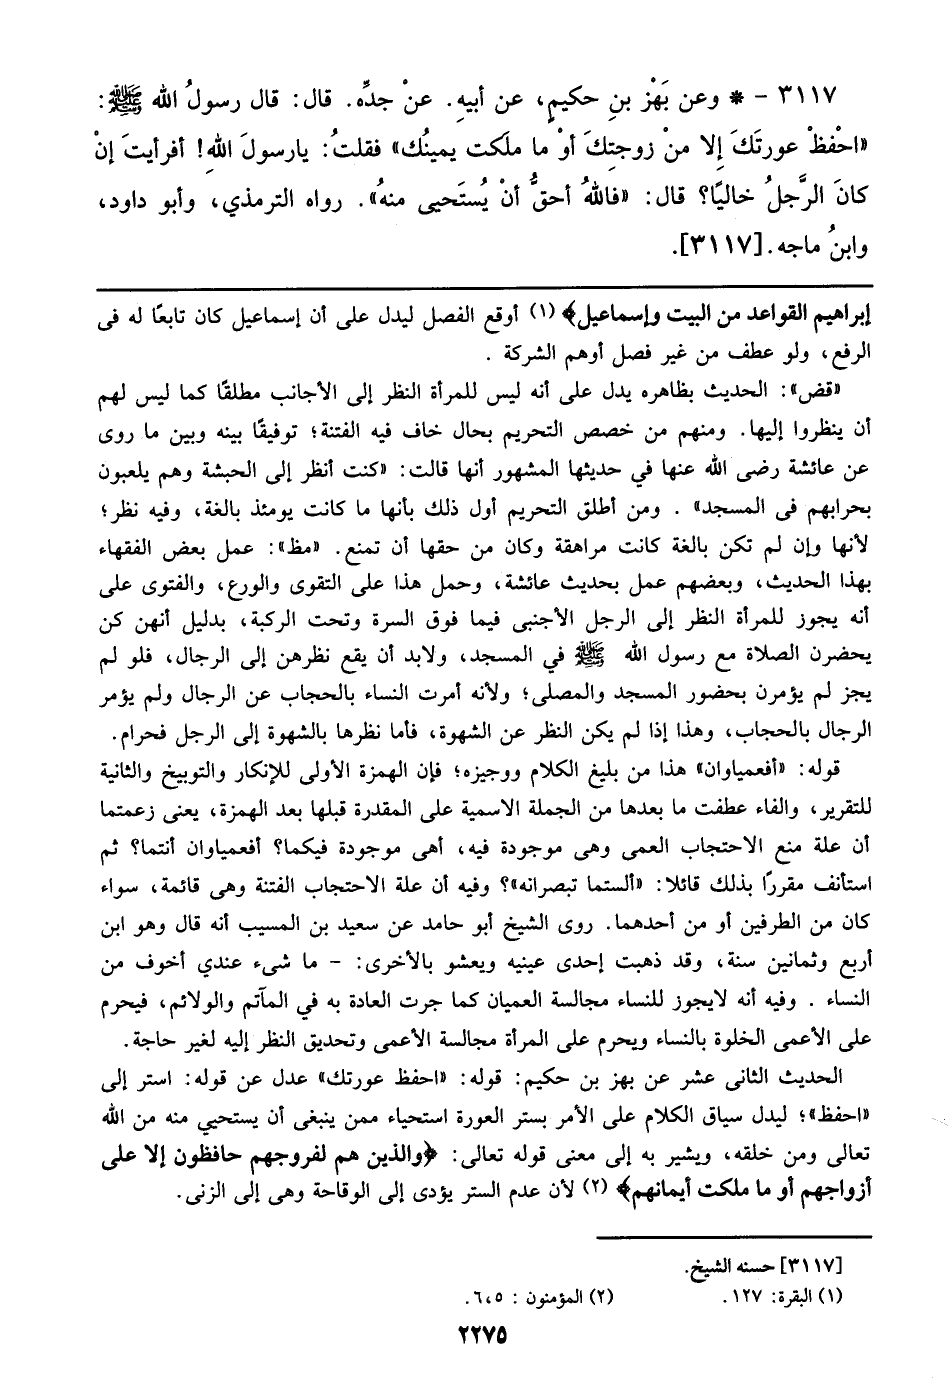 ٣١١٧ – * وعن بَهْز بنِ حكيمٍ، عن أبيهِ. عنْ جدِّه. قال: قال رسولُ الله ﷺ:
«احْفظْ عورتَكَ إِلا منْ زوجتِكَ أوْ ما ملَكت يمينُك» فقلتُ: يارسولَ اللهِ! أفرأيتَ إنْ
كانَ الرَّجلُ خاليًا؟ قال: «فاللهُ أحقُّ أنْ يُستَحيى منهُ». رواه الترمذي، وأبو داود،
وابنُ ماجه.[٣١١٧].
إبراهيم القواعد من البيت وإسماعيل﴾ (١) أوقع الفصل ليدل على أن إسماعيل كان تابعًا له فى
الرفع، ولو عطف من غير فصل أوهم الشركة .
«قض»: الحديث بظاهره يدل على أنه ليس للمرأة النظر إلى الأجانب مطلقًا كما ليس لهم
أن ينظروا إليها. ومنهم من خصص التحريم بحال خاف فيه الفتنة؛ توفيقًا بينه وبين ما روى
عن عائشة رضى الله عنها في حديثها المشهور أنها قالت: «كنت أنظر إلى الحبشة وهم يلعبون
بحرابهم فى المسجد» . ومن أطلق التحريم أول ذلك بأنها ما كانت يومئذ بالغة، وفيه نظر؛
لأنها وإن لم تكن بالغة كانت مراهقة وكان من حقها أن تمنع. «مظ»: عمل بعض الفقهاء
بهذا الحديث، وبعضهم عمل بحديث عائشة، وحمل هذا على التقوى والورع، والفتوى على
أنه يجوز للمرأة النظر إلى الرجل الأجنبى فيما فوق السرة وتحت الركبة، بدليل أنهن كن
يحضرن الصلاة مع رسول الله ﷺ في المسجد، ولابد أن يقع نظرهن إلى الرجال، فلو لم
يجز لم يؤمرن بحضور المسجد والمصلى؛ ولأنه أمرت النساء بالحجاب عن الرجال ولم يؤمر
الرجال بالحجاب، وهذا إذا لم يكن النظر عن الشهوة، فأما نظرها بالشهوة إلى الرجل فحرام.
قوله: «أفعمياوان» هذا من بليغ الكلام ووجيزه؛ فإن الهمزة الأولى للإنكار والتوبيخ والثانية
للتقرير، والفاء عطفت ما بعدها من الجملة الاسمية على المقدرة قبلها بعد الهمزة، يعنى زعمتما
أن علة منع الاحتجاب العمى وهى موجودة فيه، أهى موجودة فيكما؟ أفعمياوان أنتما؟ ثم
استأنف مقررًا بذلك قائلا: «ألستما تبصرانه»؟ وفيه أن علة الاحتجاب الفتنة وهى قائمة، سواء
كان من الطرفين أو من أحدهما. روى الشيخ أبو حامد عن سعيد بن المسيب أنه قال وهو ابن
أربع وثمانين سنة، وقد ذهبت إحدى عينيه ويعشو بالأخرى: – ما شىء عندي أخوف من
النساء . وفيه أنه لايجوز للنساء مجالسة العميان كما جرت العادة به في المآتم والولائم، فيحرم
على الأعمى الخلوة بالنساء ويحرم على المرأة مجالسة الأعمى وتحديق النظر إليه لغير حاجة.
الحديث الثانى عشر عن بهز بن حكيم: قوله: «احفظ عورتك» عدل عن قوله: استر إلى
«احفظ»؛ ليدل سياق الكلام على الأمر بستر العورة استحياء ممن ينبغى أن يستحيي منه من الله
تعالى ومن خلقه، ويشير به إلى معنى قوله تعالى: ﴿والذين هم لفروجهم حافظون إلا على
أزواجهم أو ما ملكت أيمانهم﴾ (٢) لأن عدم الستر يؤدى إلى الوقاحة وهى إلى الزنى.
[٣١١٧] حسنه الشيخ.
(١) البقرة: ١٢٧. (٢) المؤمنون : ٦،٥.
٢٢٧٥